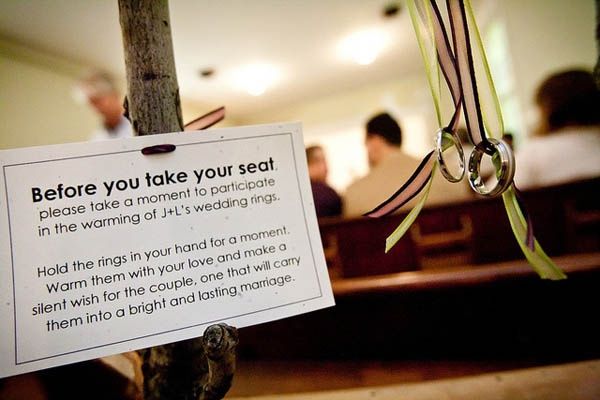 Before you take your seat
please take a moment to participate
in the warming of J+L's wedding rings.
Hold the rings in your hand for a moment.
Warm them with your love and make a
silent wish for the couple, one that will carry
them into a bright and lasting marriage.